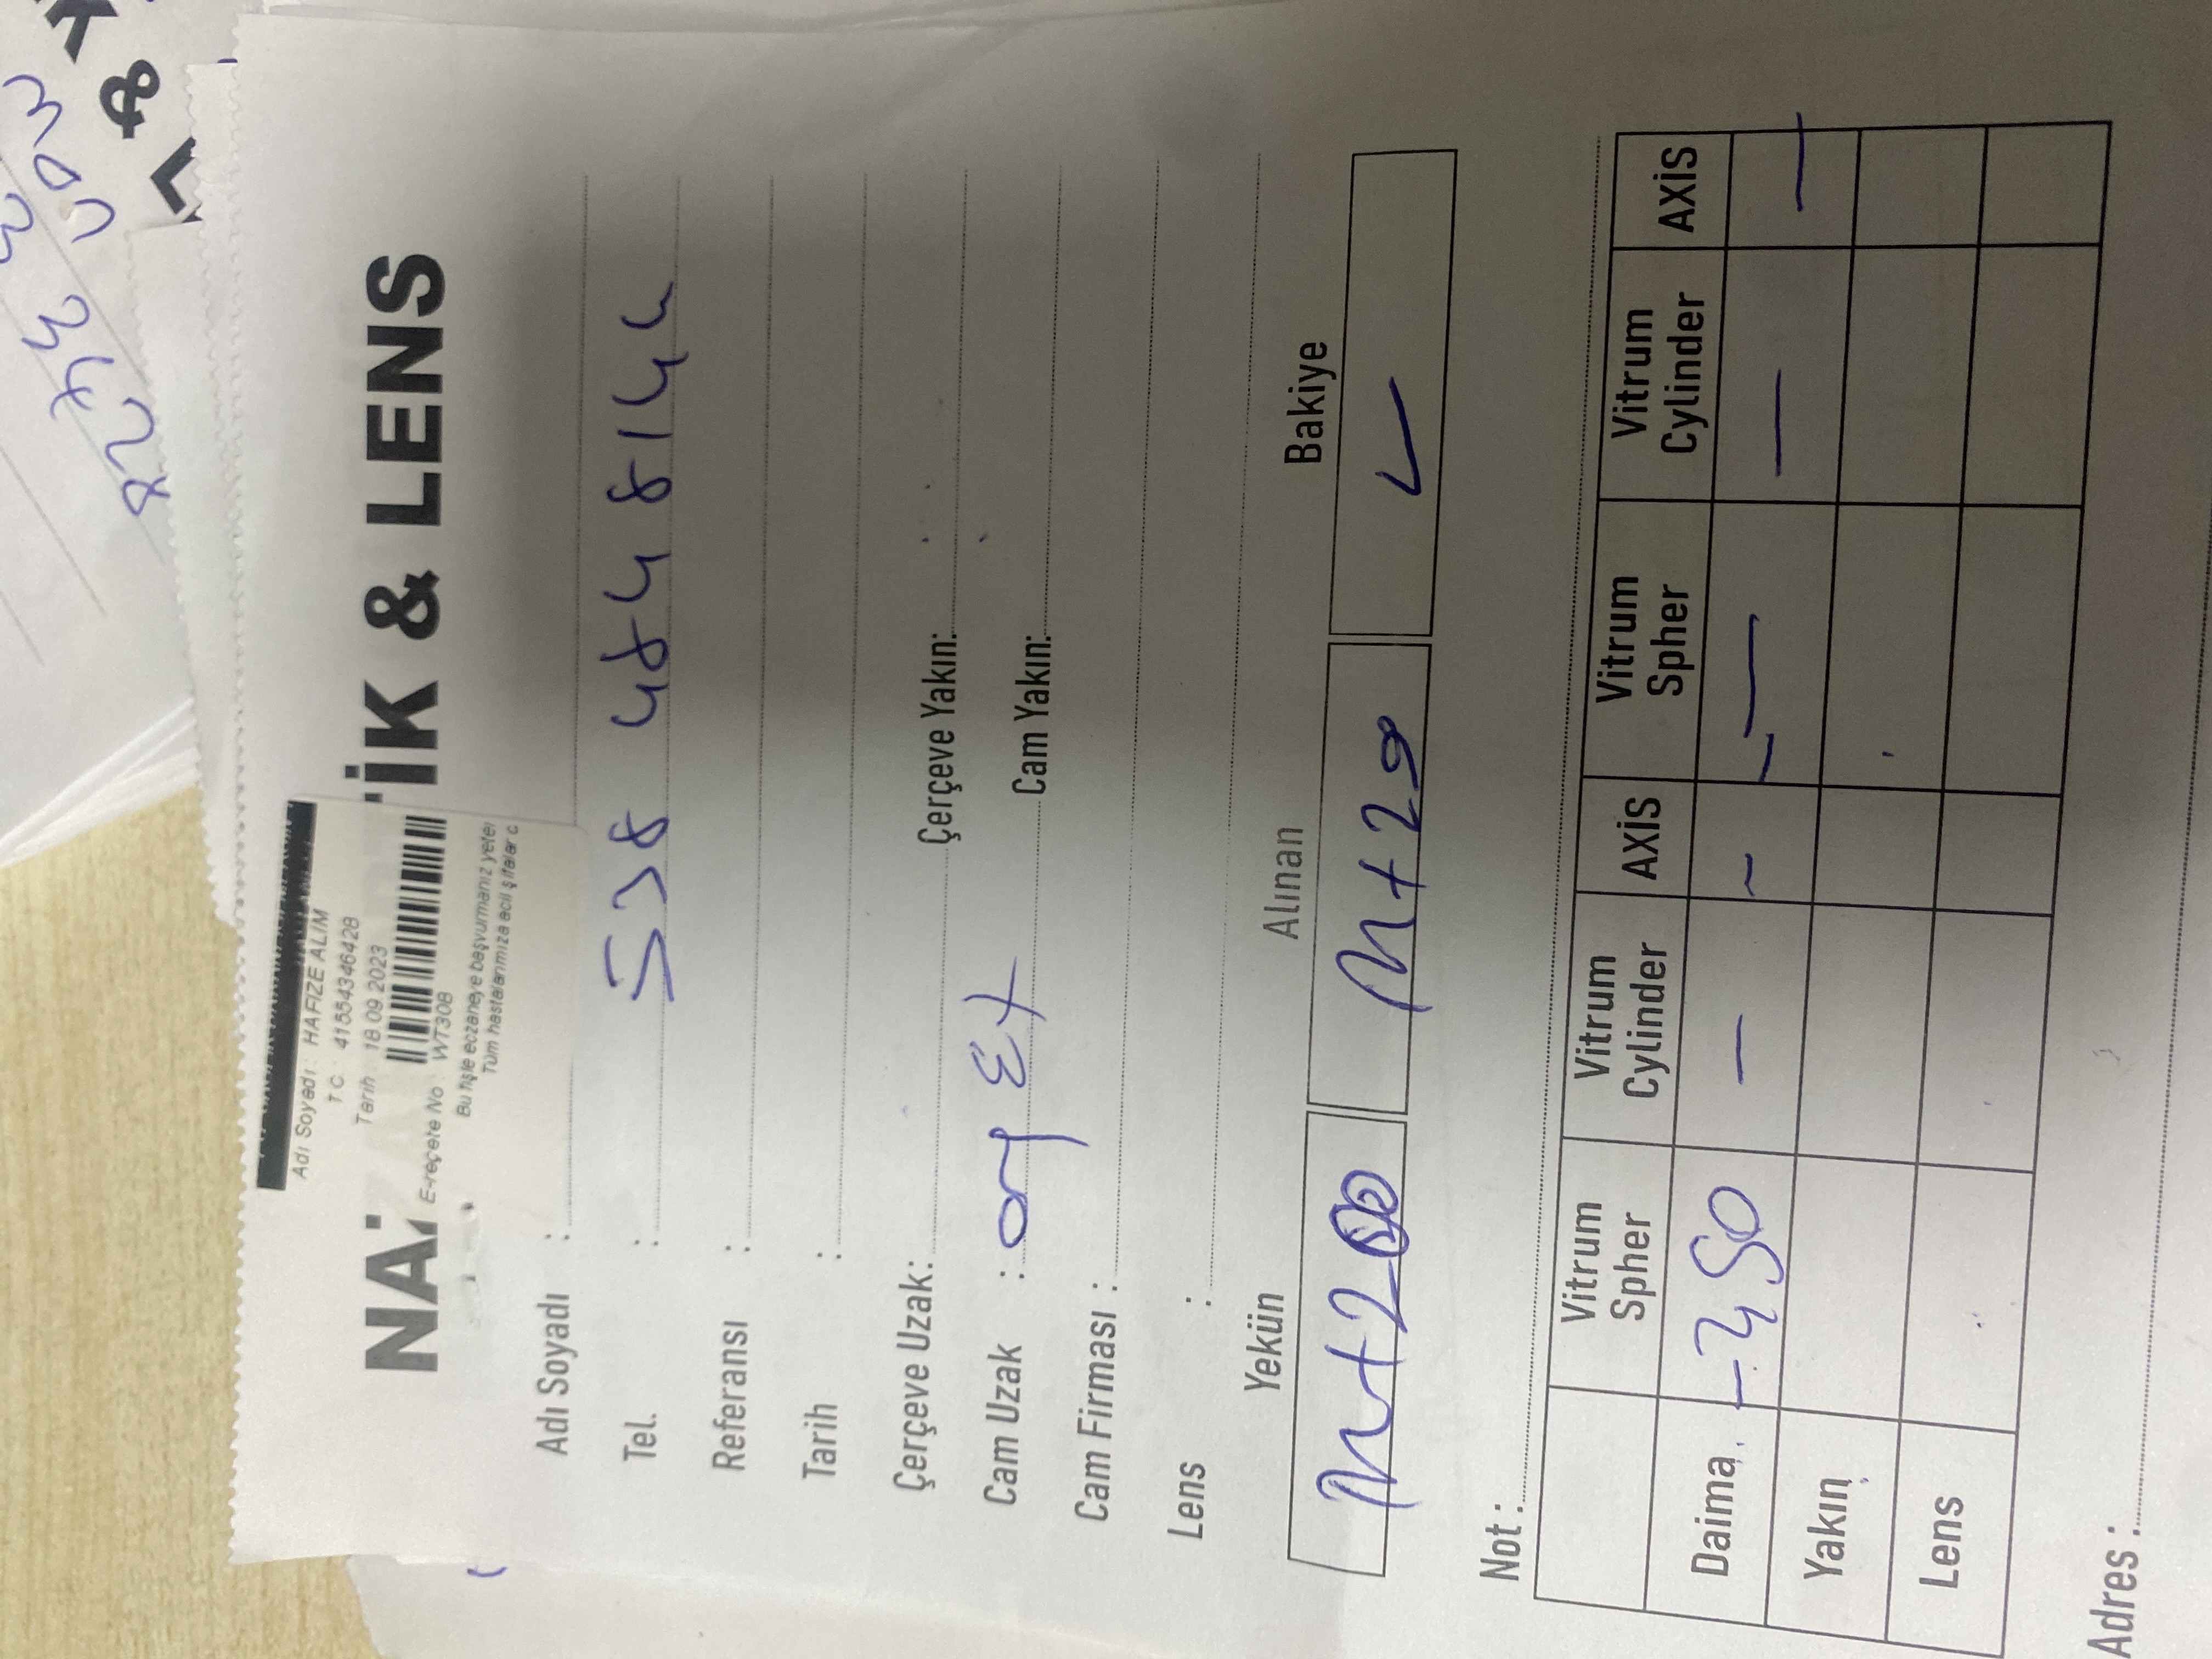 Adı Soyadı : HAFIZE ALIM
T.C. 41554346428
Tarih : 18.09.2023
E-reçete No : WT30B
Bu fişle eczaneye başvurmanız yeter
Tüm hastalarımıza acil şifalar
NAZ İK & LENS
Adı Soyadı :
Tel. : 538 484 8144
Referansı :
Tarih :
Çerçeve Uzak: Çerçeve Yakın:
Cam Uzak : Cam Yakın:
Cam Firması :
Lens :
Yekün Alınan Bakiye
M+200 M+20 ✓
Not :
Vitrum Spher Vitrum Cylinder AXİS Vitrum Spher Vitrum Cylinder AXİS
Daima - — ~ — — —
Yakın
Lens
Adres :